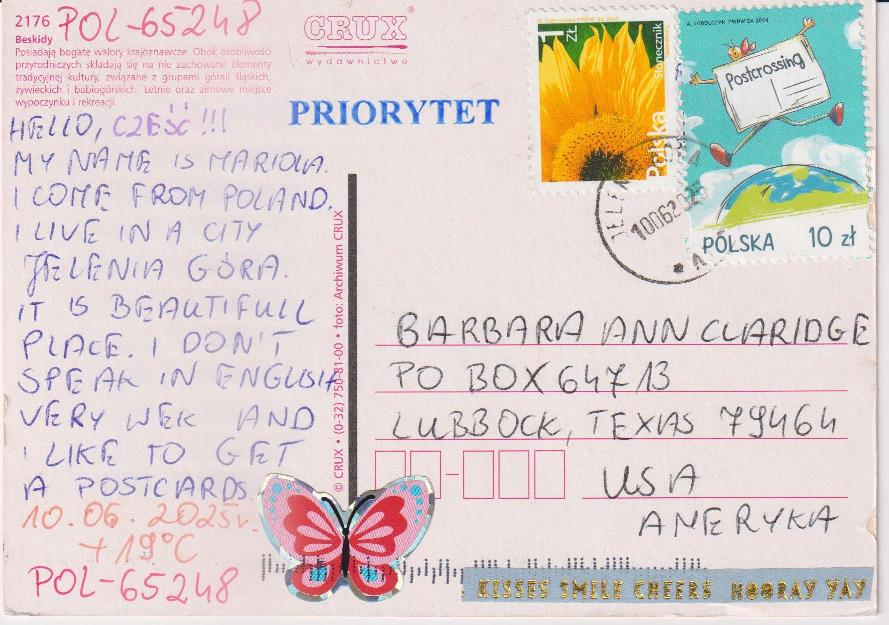 2176 POL-65248
Beskidy
Posiadają bogate walory krajoznawcze. Obok osobliwości
przyrodniczych składają się na nie zachowane elementy
tradycyjnej kultury, związane z grupami górali śląskich,
żywieckich i babiogórskich. Letnie oraz zimowe miejsce
wypoczynku i rekreacji.
HELLO, CZEŚĆ!!!
MY NAME IS MARIOLA.
I COME FROM POLAND.
I LIVE IN A CITY
JELENIA GÓRA.
IT IS BEAUTIFULL
PLACE. I DON'T
SPEAK IN ENGLISH
VERY WEK AND
I LIKE TO GET
A POSTCARDS.
10.06.2025r.
+19°C
POL-65248
CRUX®
wydawnictwo
PRIORYTET
© CRUX • (0-32) 750-81-00 • foto: Archiwum CRUX
1 ZŁ
Słonecznik
Polska
A. SOBOLCZYK PWPW SA 2024
Postcrossing
POLSKA 10 zł
10062025
BARBARA ANN CLARIDGE
PO BOX 64713
LUBBOCK, TEXAS 79464
USA
AMERYKA
KISSES SMILE CHEERS HOORAY YAY